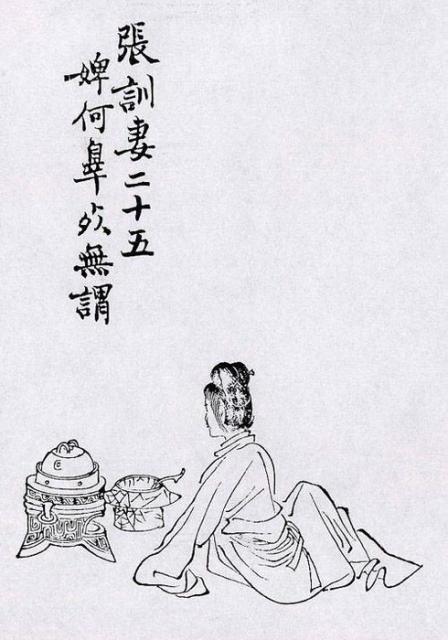 張訓妻二十五
婢何辠死無謂